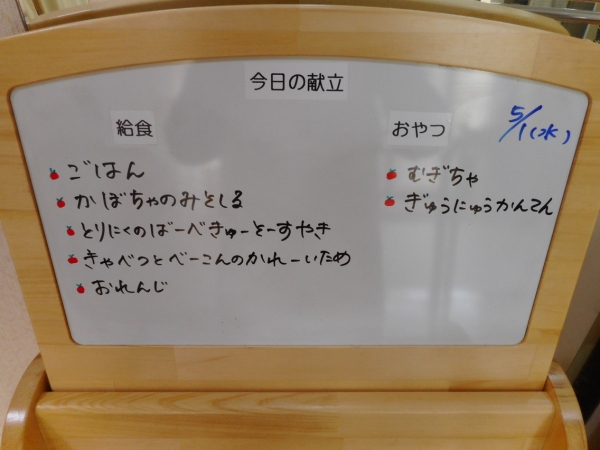 今日の献立
5/1(水)
給食
ごはん
かぼちゃのみそしる
とりにくのばーべきゅーそーすやき
きゃべつとべーこんのかれーいため
おれんじ
おやつ
むぎちゃ
ぎゅうにゅうかんてん